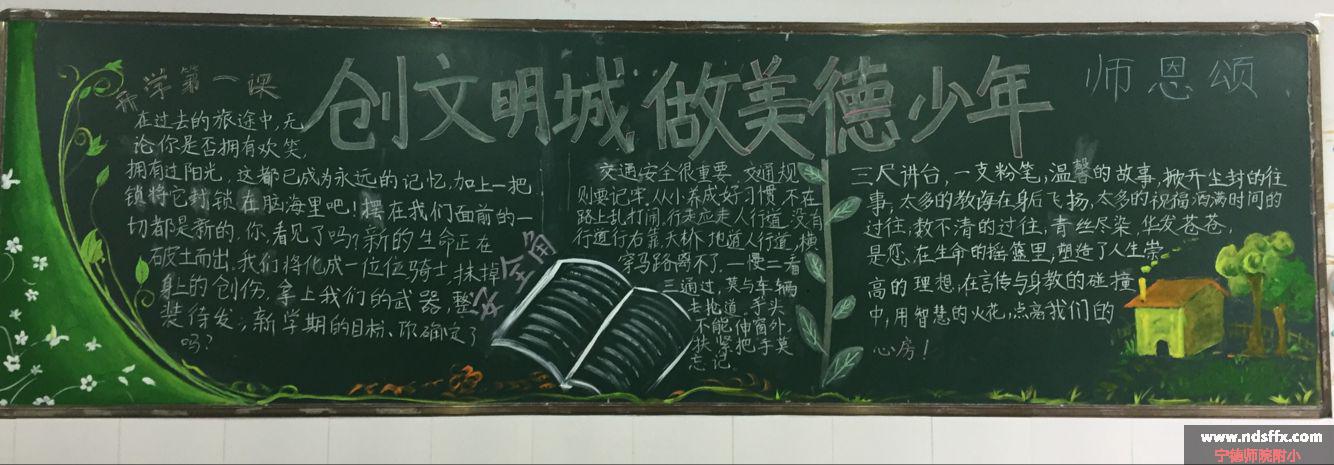 创文明城 做美德少年
开学第一课
在过去的旅途中,无
论你是否拥有欢笑,
拥有过阳光,这都已成为永远的记忆,加上一把
锁将它封锁在脑海里吧!摆在我们面前的一
切都是新的,你看见了吗?新的生命正在
破土而出,我们将化成一位位骑士,抹掉
身上的创伤,拿上我们的武器,整
装待发;新学期的目标、你确定了
吗?
安全角
交通安全很重要,交通规
则要记牢,从小养成好习惯,不在
路上乱打闹,行走应走人行道,没有
行道行右靠,天桥、地道人行道,横
穿马路离不了,一慢二看
三通过,莫与车辆
去抢道。手头
不能伸窗外,
扶紧把手莫
忘记。
师恩颂
三尺讲台,一支粉笔,温馨的故事,掀开尘封的往
事,太多的教诲在身后飞扬,太多的祝福洒满时间的
过往,数不清的过往,青丝尽染,华发苍苍,
是您,在生命的摇篮里,塑造了人生崇
高的理想,在言传与身教的碰撞
中,用智慧的火花,点亮我们的
心房!
www.ndsffx.com
宁德师院附小